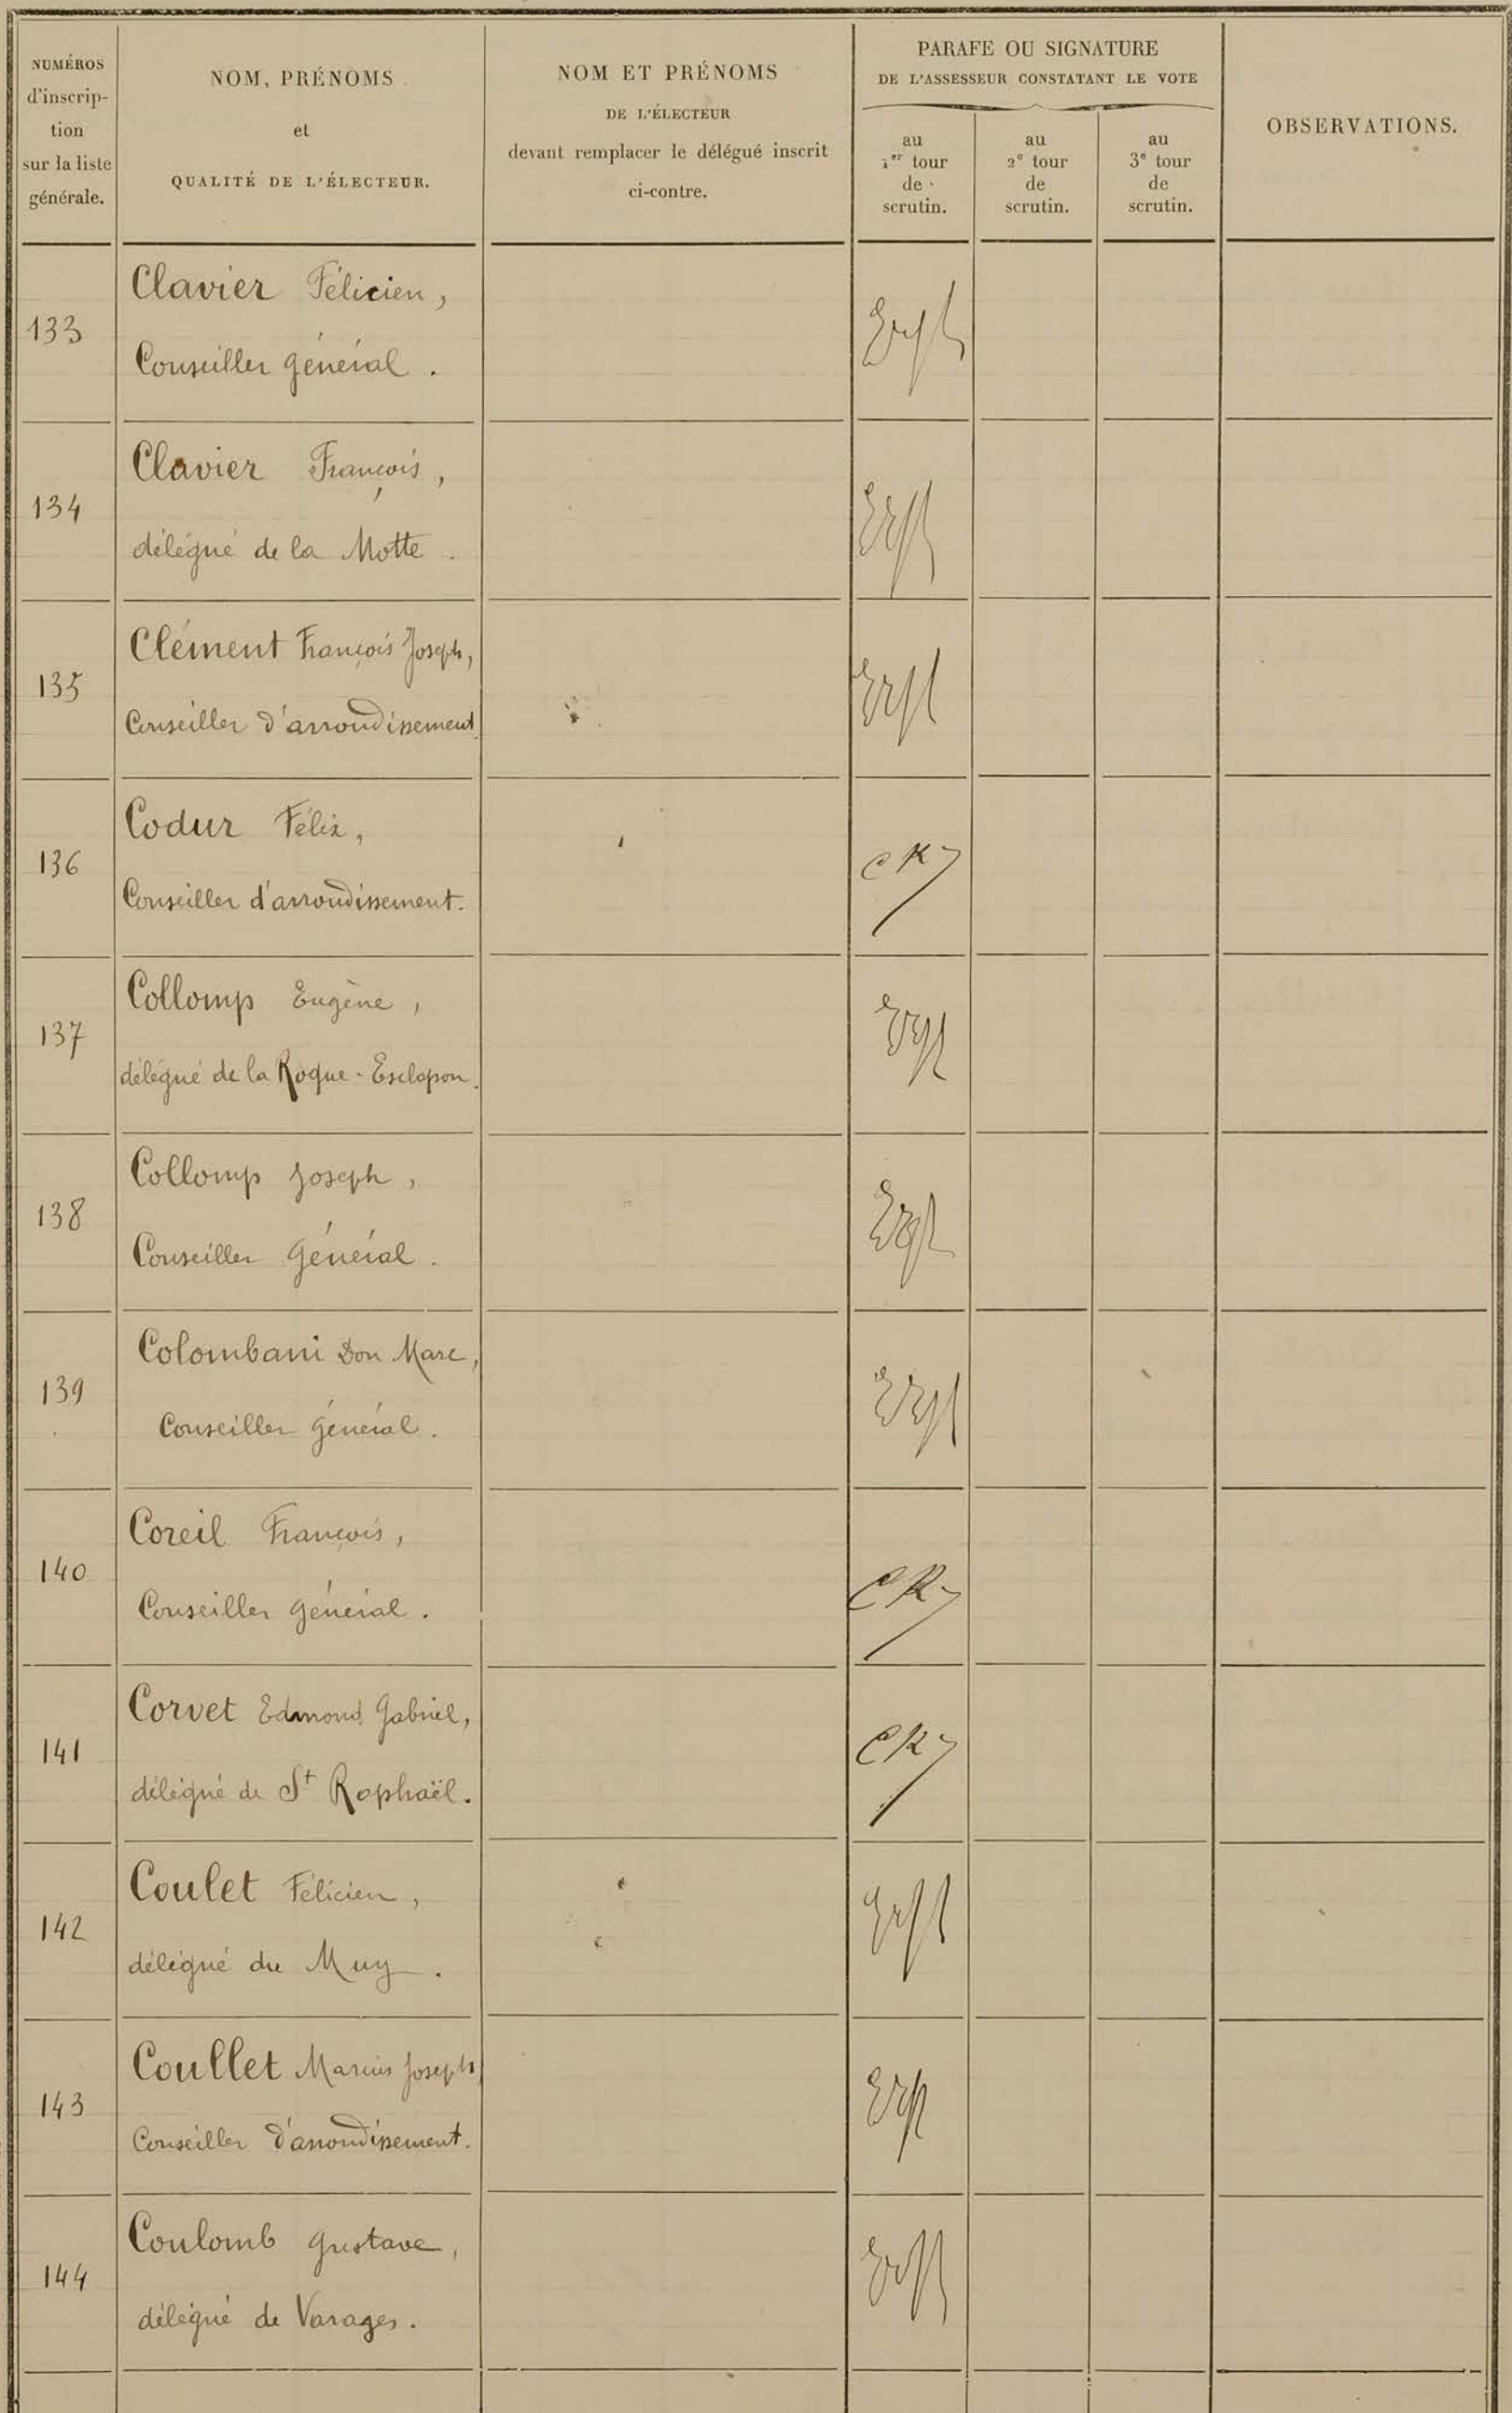 NUMÉROS
d'inscrip-
tion
sur la liste
générale.
NOM, PRÉNOMS
et
QUALITÉ DE L'ÉLECTEUR.
NOM ET PRÉNOMS
DE L'ÉLECTEUR
devant remplacer le délégué inscrit
ci-contre.
PARAFE OU SIGNATURE
DE L'ASSESSEUR CONSTATANT LE VOTE
au
1er tour
de
scrutin.
au
2e tour
de
scrutin.
au
3e tour
de
scrutin.
OBSERVATIONS.
133
Clavier Félicien,
Conseiller général.
134
Clavier François,
délégué de la Motte.
135
Clément François Joseph,
Conseiller d'arrondissement
136
Codur Félix,
Conseiller d'arrondissement.
CR
137
Collomp Eugène,
délégué de la Roque-Esclapon.
138
Collomp Joseph,
Conseiller Général.
139
Colombani Don Marc,
Conseiller Général.
140
Coreil François,
Conseiller général.
CR
141
Corvet Edmond Gabriel,
délégué de St Raphaël.
CR
142
Coulet Félicien,
délégué du Muy.
143
Coullet Marius Joseph
Conseiller d'arrondissement.
144
Coulomb Gustave,
délégué de Varages.